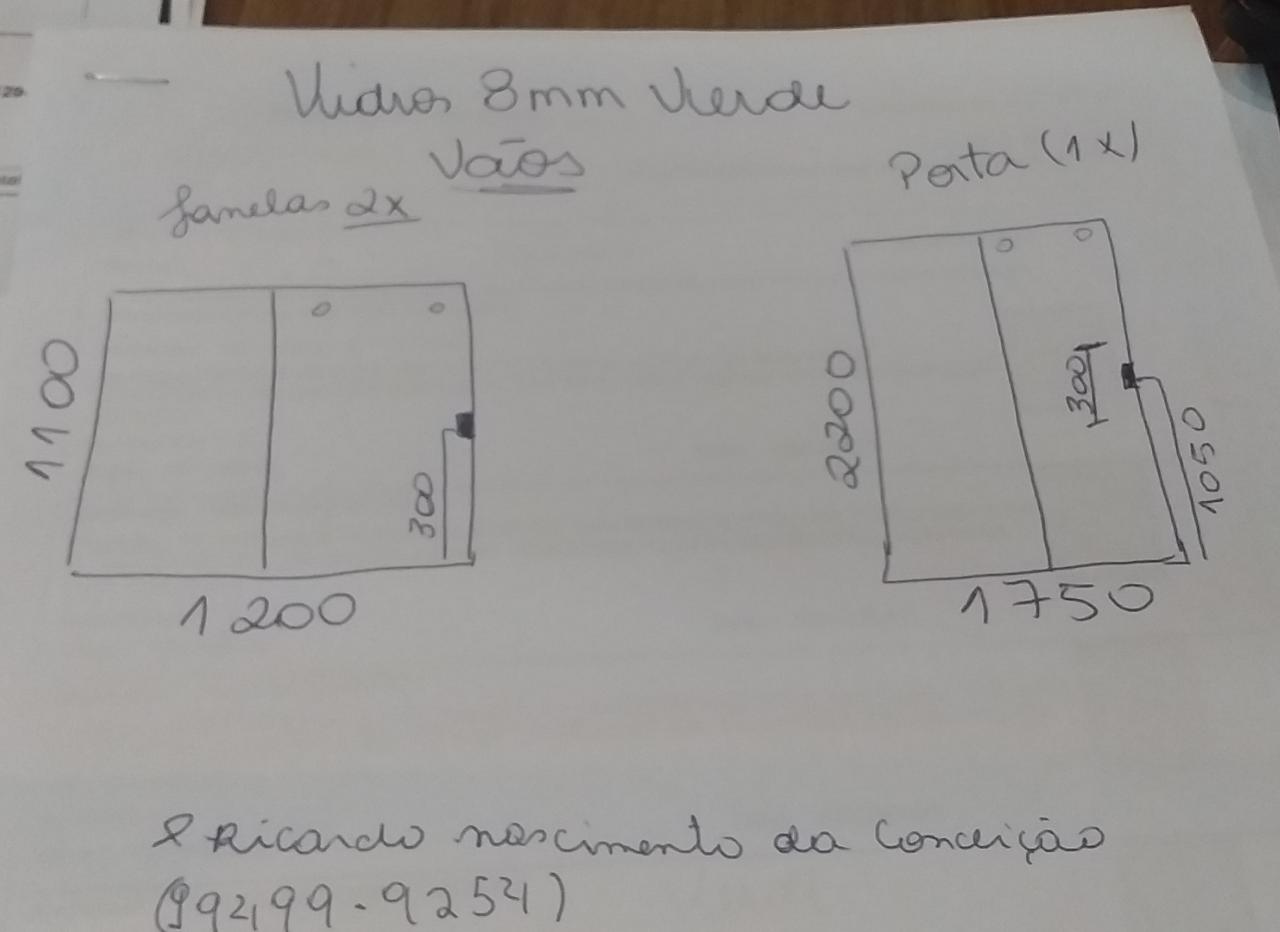 Vidros 8mm Verde
Vãos
Janelas 2x
Porta (1x)
1100
300
1200
2200
300
1050
1750
Ricardo nascimento da Conceição
(99299-9254)